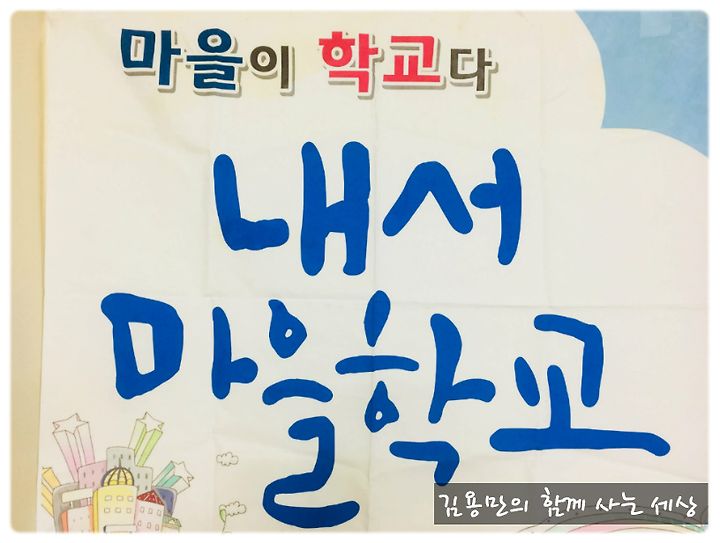 마을이 학교다
내서
마을학교
김용만의 함께 사는 세상